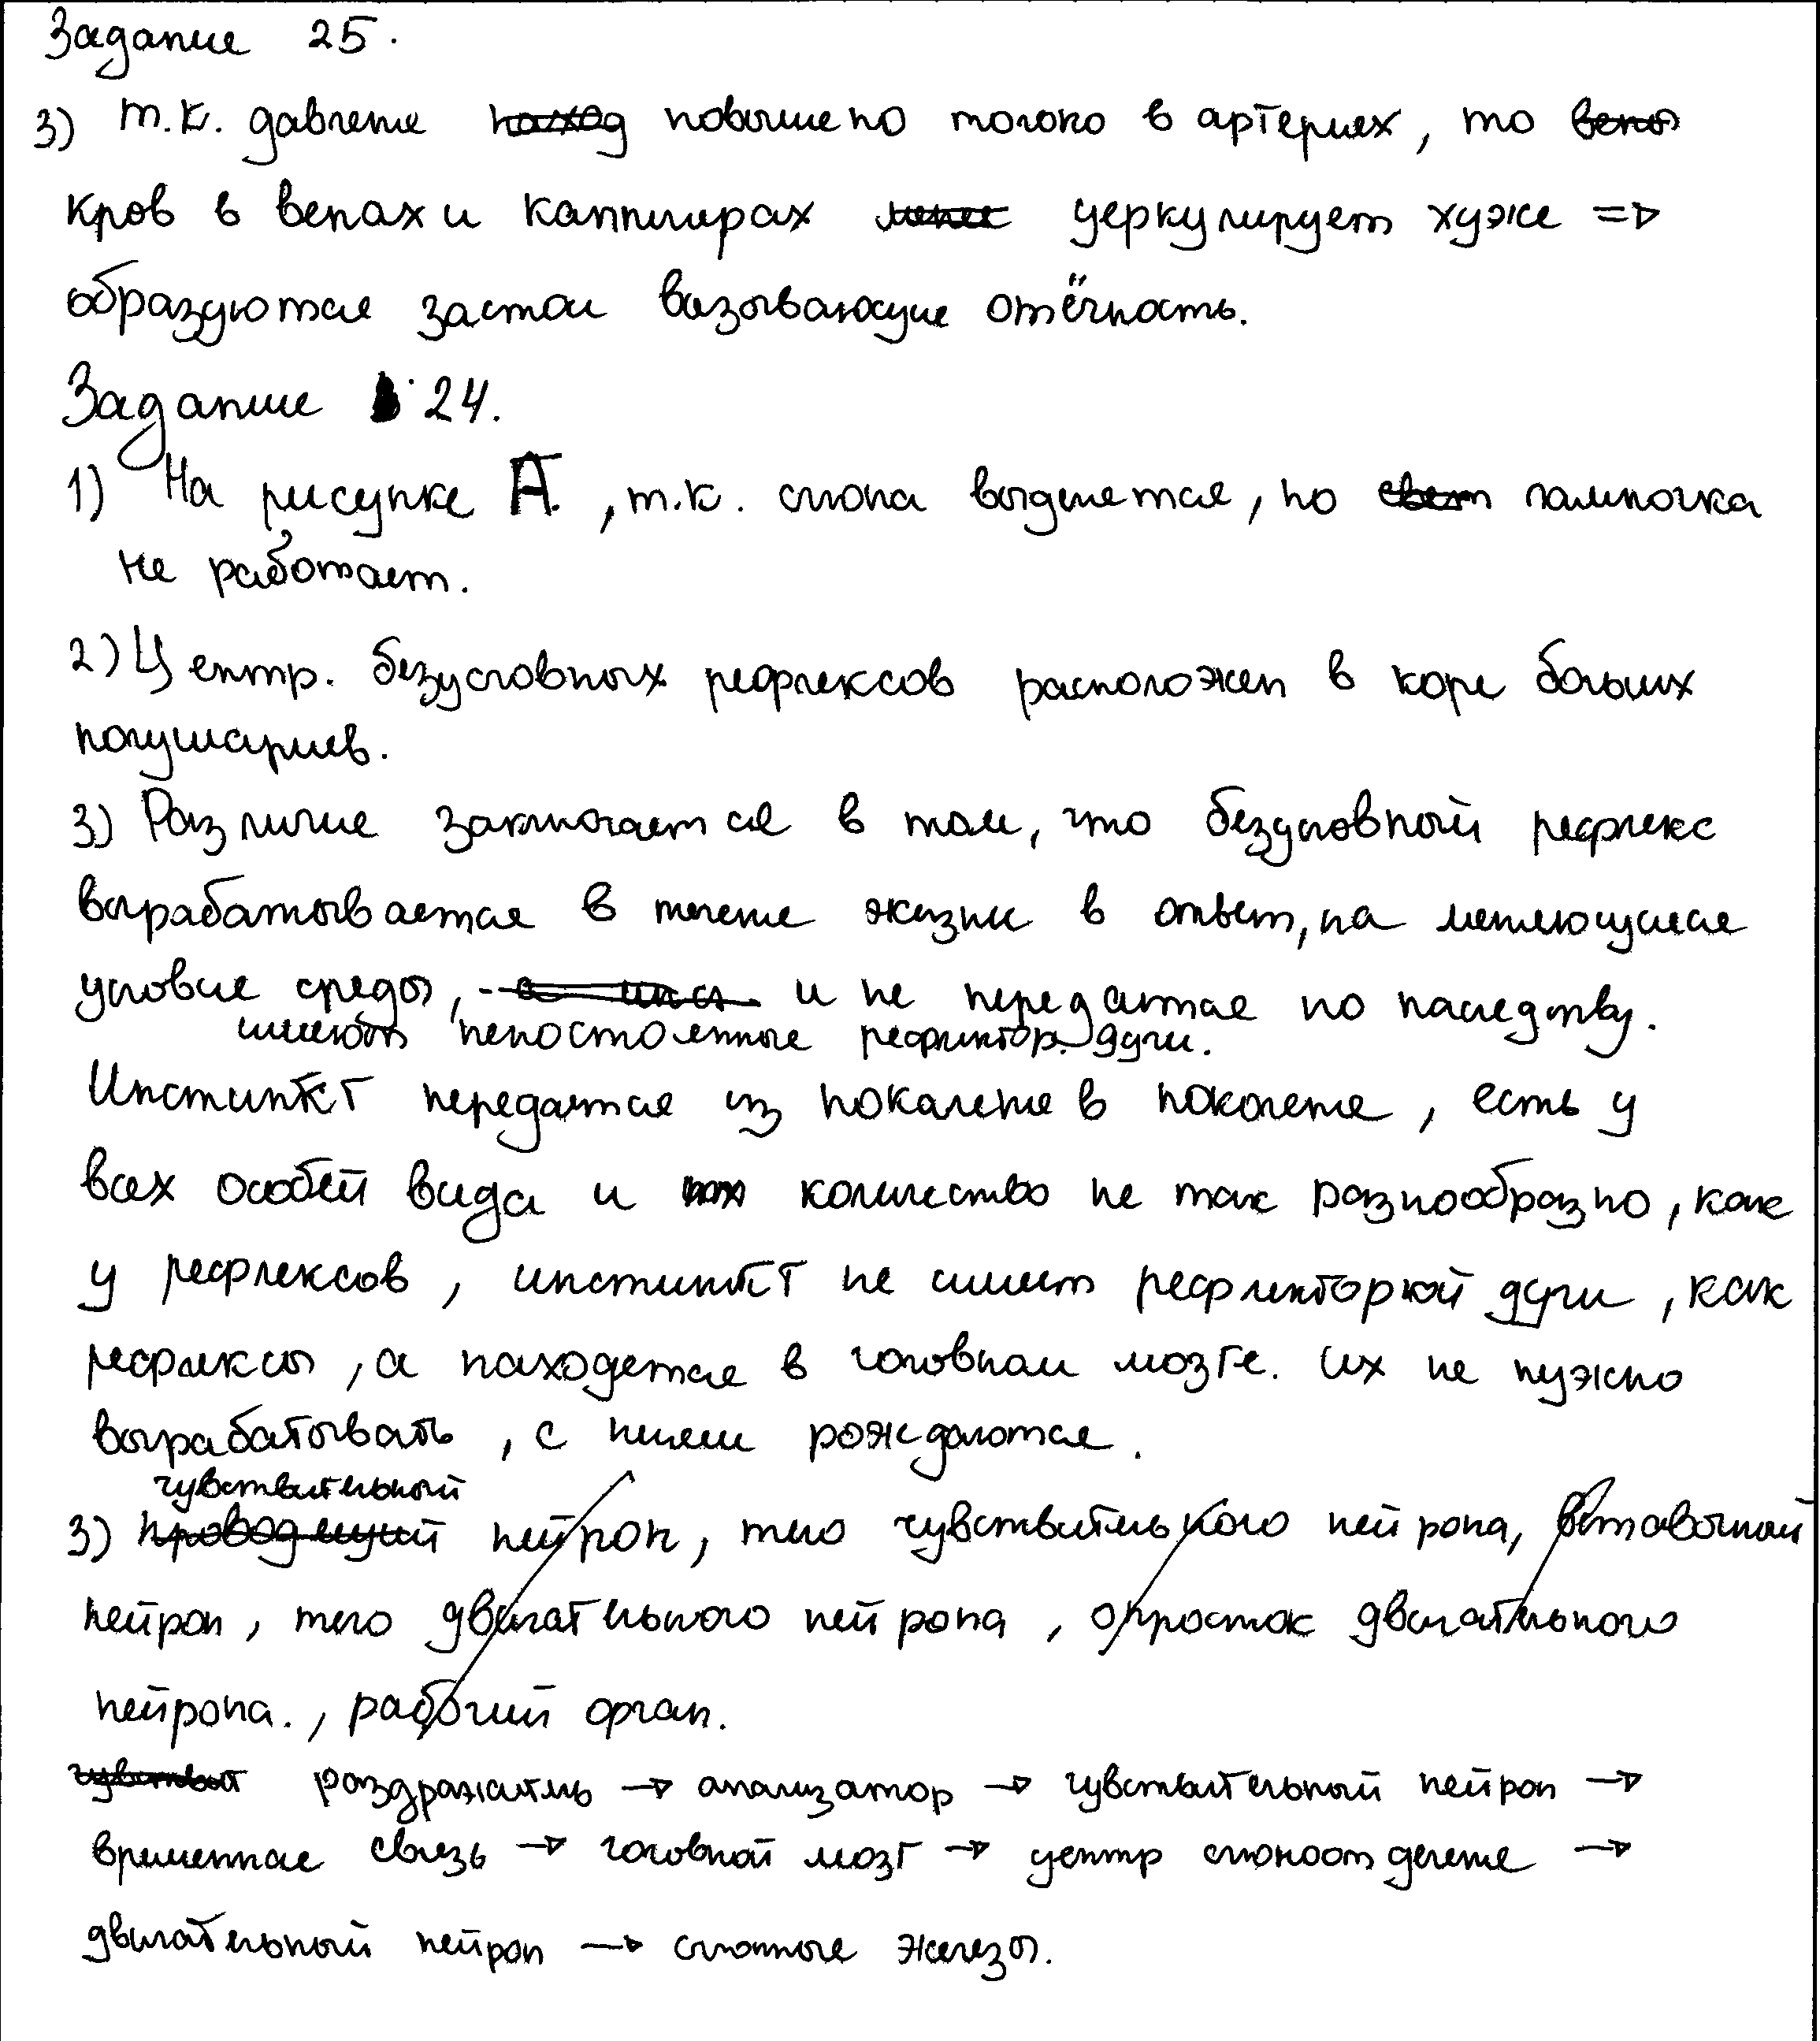 Задание 25.
3) т.к. давление повышено только в артериях, то
кров в венах и капилирах церкулирует хуже =>
образуются застои вызывающие отёчность.
Задание 24.
1) На рисунке А., т.к. слюна выделяется, но лампочка
не работает.
2) Центр. безусловных рефлексов расположен в коре больших
полушариев.
3) Различие заключается в том, что безусловный рефлекс
вырабатывается в течение жизни в ответ, на меняющиеся
условие среды, и не передаётся по наследству.
имеють непостоянные рефлектор. дуги.
Инстинкт передаётся из покаление в поколение, есть у
всех особей вида и количество не так разнообразно, как
у рефлексов, инстинкт не имеет рефлекторной дуги, как
рефлексы, а находется в головном мозге. Их не нужно
вырабатывать, с ними рождаются.
чувствительный
3) проводящий нейрон, тело чувствительного нейрона, вставочный
нейрон, тело двигательного нейрона, отросток двигательного
нейрона., рабочий орган.
раздражитель → анализатор → чувствительный нейрон →
временная связь → головной мозг → центр слюноотделение →
двигательный нейрон → слюнные железы.